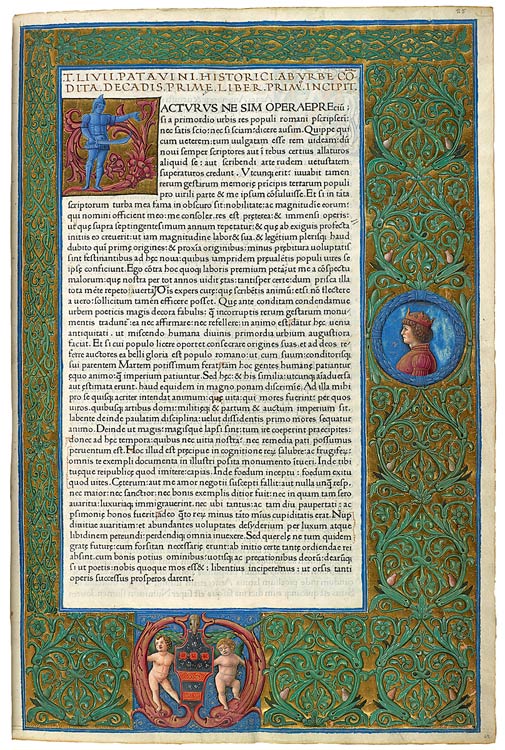 T. LIVII. PATAVINI. HISTORICI. AB VRBE CŌ
DITA. DECADIS. PRIMÆ. LIBER. PRIM9. INCIPIT.
FACTVRVS NE SIM OPERAEPREciū:
si a primordio urbis res populi romani pscripseri:
nec satis scio: nec si sciam: dicere ausim. Quippe qui
cum ueterem: tum uulgatam esse rem uideam: dū
noui semper scriptores aut ī rebus certius allaturos
aliquid se: aut scribendi arte rudem uetustatem
superaturos credunt. Vtcunq; erit: iuuabit tamen
rerum gestarum memorię pricipis terrarum populi
pro uirili parte & me ipsum cōsuluisse. Et si in tāta
scriptorum turba mea fama in obscuro sit: nobilitate: ac magnitudie eorum:
qui nomini officient meo: me consoler. res est pręterea: & immensi operis:
ut quę supra septingentesimum annum repetatur: & quę ab exiguis profecta
initiis eo creuerit: ut iam magnitudine laboret sua. & legētium plerisq; haud
dubito qui primę origines: & proxīa originibus: minus prębitura uoluptatis
sint festinantibus ad hęc noua: quibus iampridem pręualētis populi uires se
ipsę conficiunt. Ego cōtra hoc quoq; laboris premium petā: ut me a cōspectu
malorum: quę nostra per tot annos uidit ętas: tantisper certe: dum prisca illa
tota mēte repeto: auertā. Oīs expers curę: quę scribentis animū: etsi nō flectere
a uero: sollicitum tamen efficere posset. Quę ante conditam condendamue
urbem poeticis magis decora fabulis: q̄ incorruptis rerum gestarum monu-
mentis tradunt᷑: ea nec affirmare: nec refellere: in animo est. datur hęc uenia
antiquitati. ut miscendo humana diuinis primordia urbium augustiora
faciat. Et si cui populo licere oportet consecrare origines suas. et ad deos re-
ferre auctores ea belli gloria est populo romano: ut cum suum: conditorisq;
sui parentem Martem potissimum ferat: tam hoc gentes humanę patiantur
equo animo: q̄ imperium patiuntur. Sed hęc: & his similia: utcunq; aīaduersa
aut estimata erunt. haud equidem in magno ponam discrimīe. Ad illa mihi
pro se quisq; acriter intendat animum: quę uita: qui mores fuerint: per quos
uiros. quibusq; artibus domi: militięq; & partum & auctum imperium sit.
labente deinde paulatim disciplina: uelut dissidentis primo mores sequatur
animo. Deinde ut magis: magisque lapsi sint: tum ire coeperint praecipites:
donec ad hęc tempora: quibus nec uitia nostra: nec remedia pati possumus
peruentum est. Hoc illud est pręcipue in cognitione reꝝ salubre: ac frugiferū:
omnis te exempli documenta in illustri posita monumento itueri. Inde tibi
tueque reipublicę quod imitere: capias. Inde foedum inceptu: foedum exitu
quod uites. Ceterum: aut me amor negotii suscepti fallit: aut nulla unq̄ resp.
nec maior: nec sanctior: nec bonis exemplis ditior fuit: nec in quam tam sero
auaritia: luxuriaq; immigrauerint. nec ubi tantus: ac tam diu paupertati: ac
psimonię honos fuerit: adeo q̄to reꝝ minus: tāto mīus cupiditatis erat. Nup
diuitię auaritiam: et abundantes uoluptates desyderium per luxum atque
libidinem pereundi: perdendiq; omnia inuexere. Sed querelę ne tum quidem
gratę futurę: cum forsitan necessarię erunt: ab initio certe tantę ordiendae rei
absint. cum bonis potius ominibus: uotisq; ac precationibus deorū: dearūq;
si ut poetis: nobis quoque mos esset: libentius inciperemus: ut orsis tanti
operis successus prosperos darent.